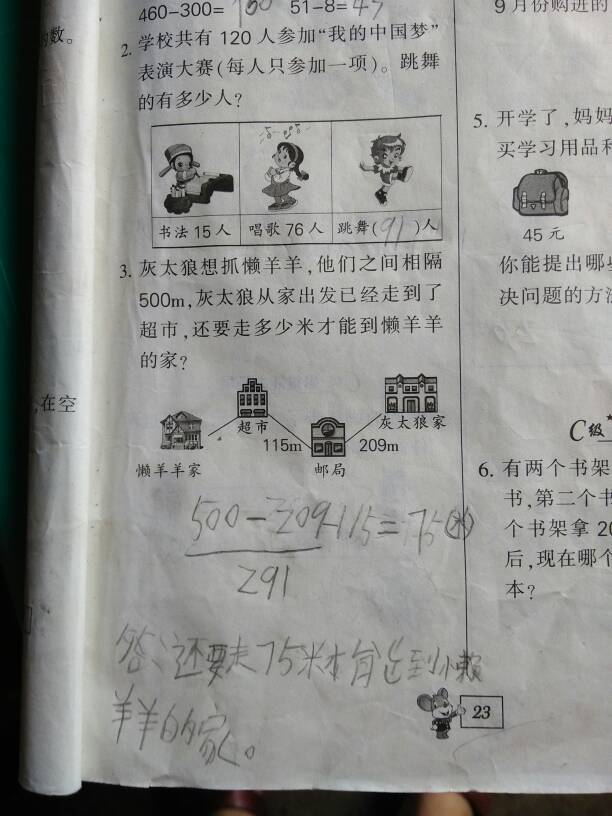 460-300=160 51-8=43
的数。
2. 学校共有 120 人参加“我的中国梦”
表演大赛(每人只参加一项)。跳舞
的有多少人?
书法 15 人 唱歌 76 人 跳舞(91)人
3. 灰太狼想抓懒羊羊,他们之间相隔
500m,灰太狼从家出发已经走到了
超市,还要走多少米才能到懒羊羊
的家?
,在空
超市 灰太狼家
115m 209m
懒羊羊家 邮局
500-209-115=75(米)
291
答:还要走75米才能达到懒
羊羊的家。
23
9 月份购进的
5. 开学了,妈妈
买学习用品和
45 元
你能提出哪些
决问题的方法
C级
6. 有两个书架
书,第二个书
个书架拿 20
后,现在哪个
本?